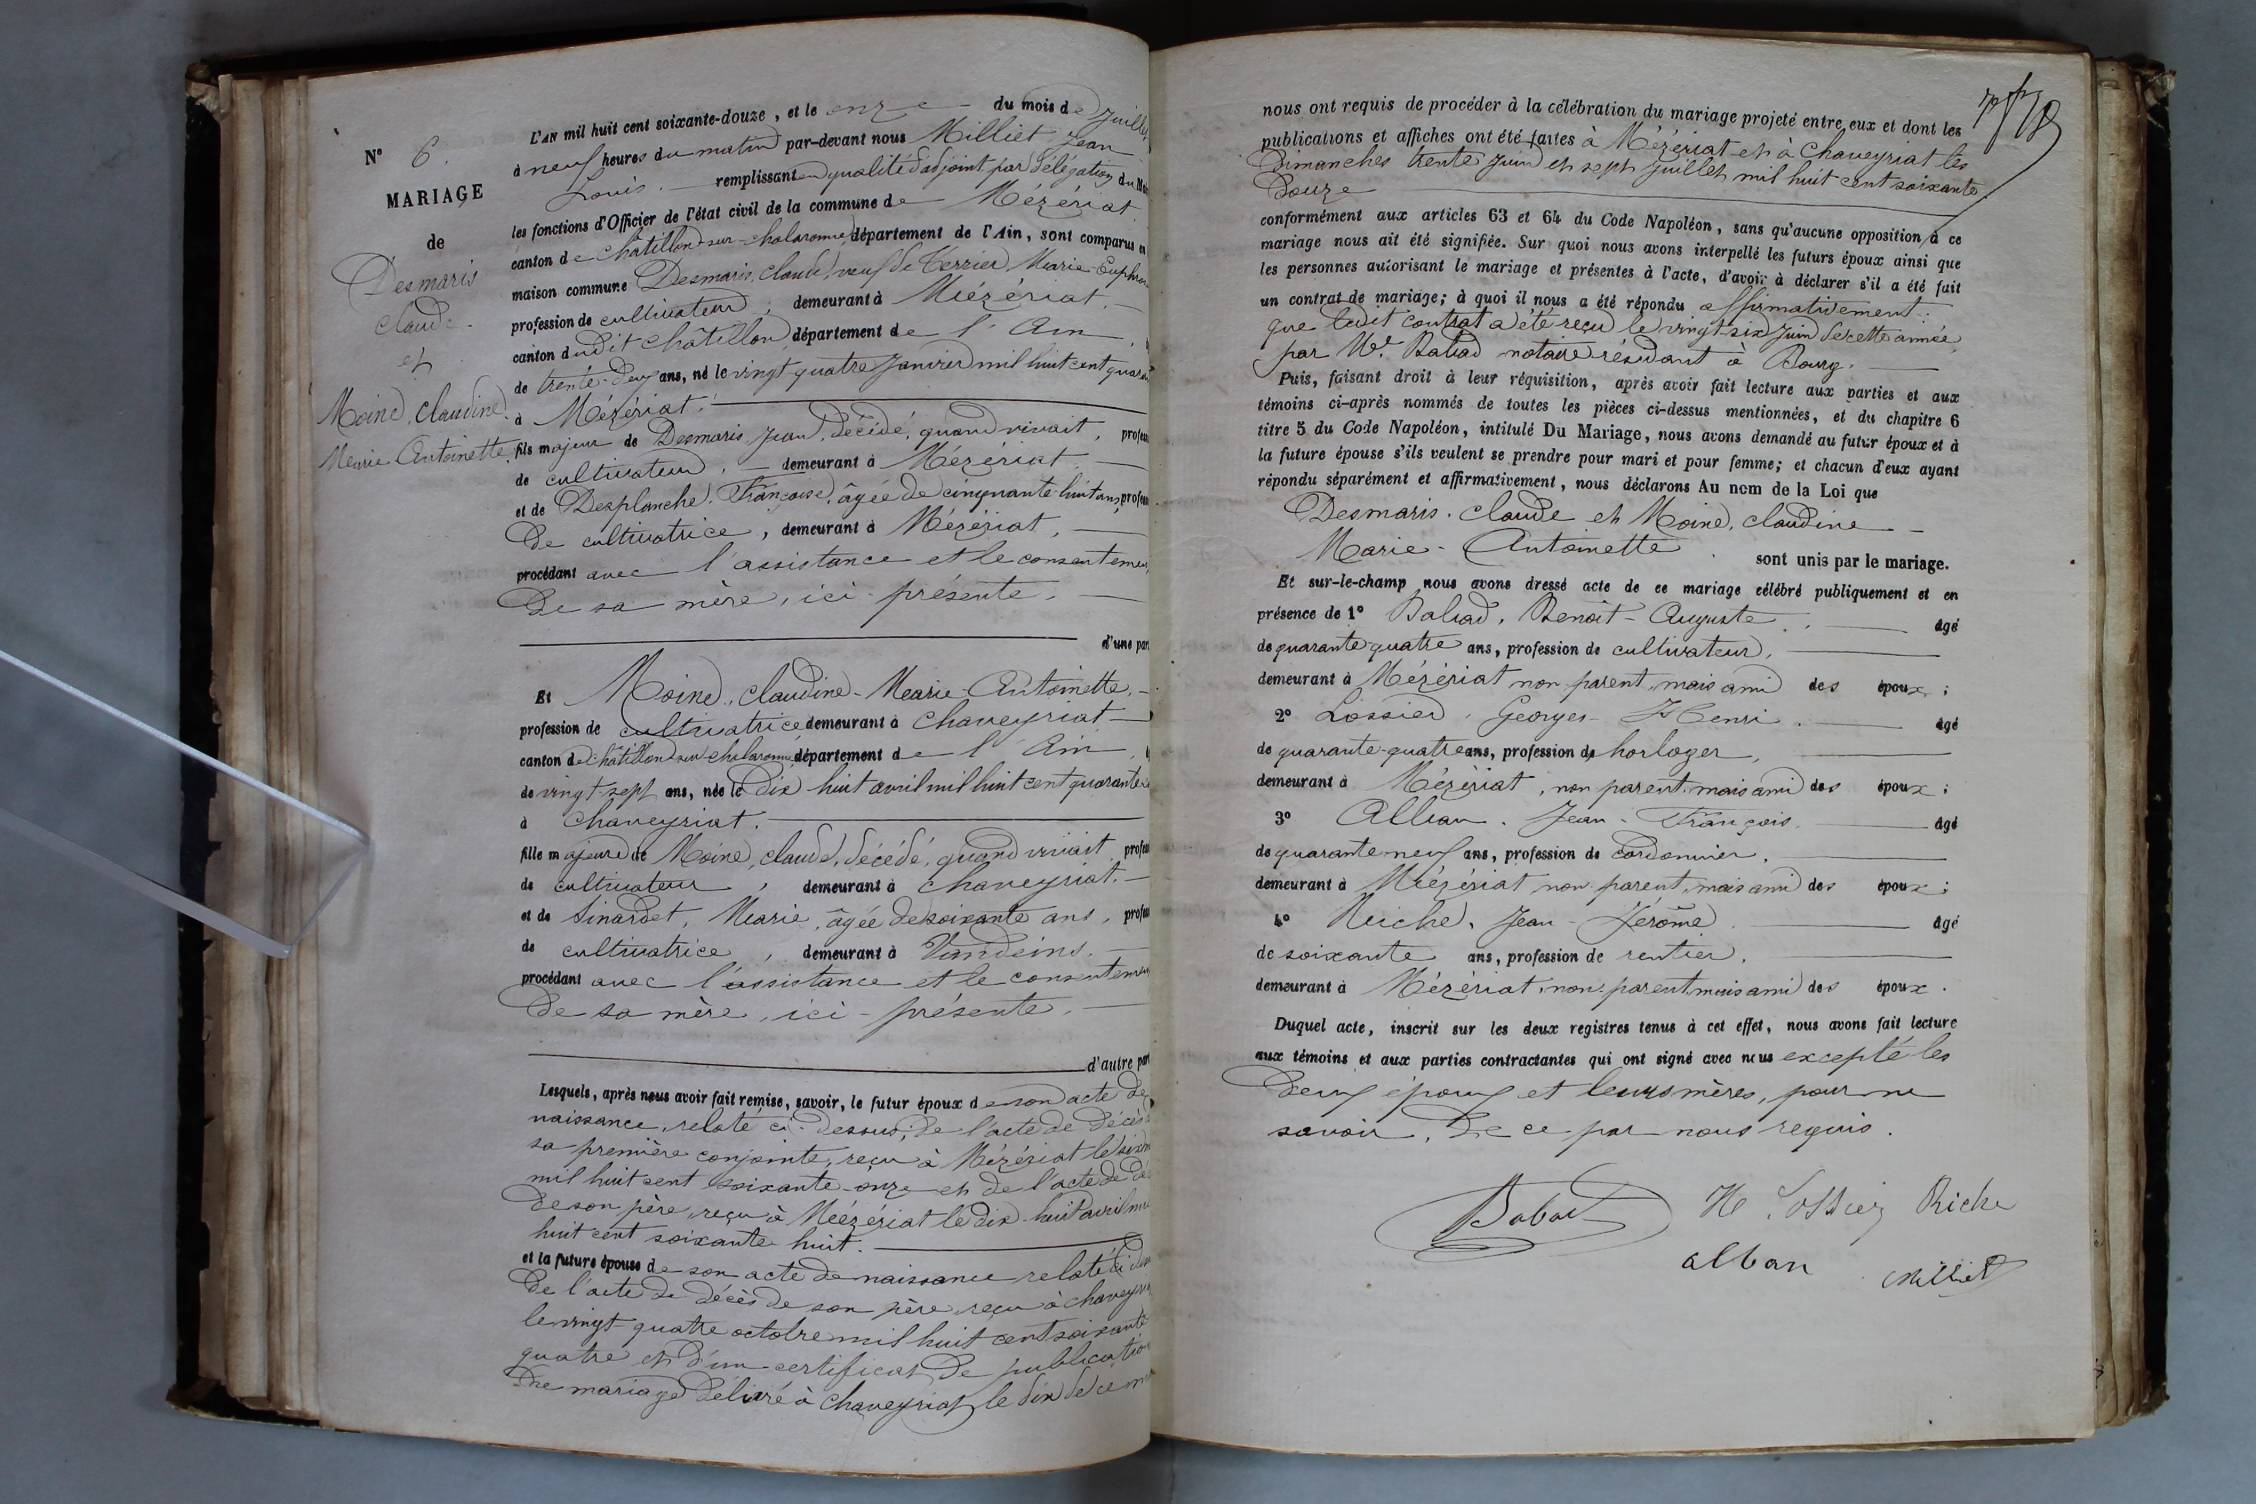 N° 6.
MARIAGE
de
Desmaris
claude.
et
Moine, claudine
Marie Antoinette
L'AN mil huit cent soixante-douze, et le onze du mois de Juillet
à neuf heures du matin par-devant nous Milliet Jean
Louis. remplissant en qualité d'adjoint par délégation du
les fonctions d'Officier de l'état civil de la commune de Mézériat
canton de Châtillon-sur-chalaronne département de l'Ain, sont comparus en
maison commune Desmaris, claude, veuf de Terrier, Marie
profession de cultivateur, demeurant à Mézériat.
canton dudit Châtillon, département de l'Ain,
de trente-deux ans, né le vingt quatre Janvier mil huit cent
à Mézériat.
fils majeur de Desmaris, Jean, décédé, quand vivait,
de cultivateur, demeurant à Mézériat.
et de Desplanche, Françoise, âgée de cinquante-huit ans,
de cultivatrice, demeurant à Mézériat,
procédant avec l'assistance et le
de sa mère, ici présente.
d'une
Et Moine, claudine-Marie-Antoinette,
profession de cultivatrice demeurant à chaveyriat
canton de châtillon-sur-chalaronne département de l'Ain,
de vingt-sept ans, née le dix huit avril mil huit cent
à chaveyriat.
fille majeure de Moine, claude, décédé, quand vivait,
de cultivateur, demeurant à chaveyriat.
et de Sinardet, Marie, âgée de soixante ans,
de cultivatrice, demeurant à Vandeins.
procédant avec l'assistance et le
de sa mère, ici-présente.
d'autre part
Lesquels, après nous avoir fait remise, savoir, le futur époux de son acte de
naissance, relaté ci-dessus; de l'acte de décès
sa première conjointe, reçu à Mézériat le
mil huit cent soixante-onze et de l'acte de
de son père, reçu à Mézériat le dix-huit avril mil
huit cent soixante huit.
et la future épouse de son acte de naissance relaté ci
de l'acte de décès de son père, reçu à
le vingt-quatre octobre mil huit cent soixante
quatre et d'un certificat de publication
de mariage délivré à chaveyriat le dix de ce
nous ont requis de procéder à la célébration du mariage projeté entre eux et dont les
publications et affiches ont été faites à Mézériat et à chaveyriat les
Dimanches trente juin et sept juillet mil huit cent soixante
douze
conformément aux articles 63 et 64 du Code Napoléon, sans qu'aucune opposition à ce
mariage nous ait été signifiée. Sur quoi nous avons interpellé les futurs époux ainsi que
les personnes autorisant le mariage et présentes à l'acte, d'avoir à déclarer s'il a été fait
un contrat de mariage; à quoi il nous a été répondu affirmativement:
que ledit contrat a été reçu le vingt-six juin de cette année,
par Me notaire résidant à Bourg.
Puis, faisant droit à leur réquisition, après avoir fait lecture aux parties et aux
témoins ci-après nommés de toutes les pièces ci-dessus mentionnées, et du chapitre 6
titre 5 du Code Napoléon, intitulé Du Mariage, nous avons demandé au futur époux et à
la future épouse s'ils veulent se prendre pour mari et pour femme; et chacun d'eux ayant
répondu séparément et affirmativement, nous déclarons Au nom de la Loi que
Desmaris. claude et Moine, claudine
Marie-Antoinette. sont unis par le mariage.
Et sur-le-champ nous avons dressé acte de ce mariage célébré publiquement et en
présence de 1° Benoît-Auguste. âgé
de quarante quatre ans, profession de cultivateur,
demeurant à Mézériat non parent, mais ami des époux;
2° Lossier, Georges-Henri. âgé
de quarante-quatre ans, profession de horloger,
demeurant à Mézériat, non parent, mais ami des époux;
3° Alban. Jean-François. âgé
de quarante neuf ans, profession de cordonnier,
demeurant à Mézériat non parent, mais ami des époux;
4° Riche, Jean-Jérôme. âgé
de soixante ans, profession de rentier,
demeurant à Mézériat, non parent, mais ami des époux.
Duquel acte, inscrit sur les deux registres tenus à cet effet, nous avons fait lecture
aux témoins et aux parties contractantes qui ont signé avec nous excepté les
deux époux et leurs mères, pour ne
savoir, de ce par nous requis.
H Lossier Riche
alban Milliet